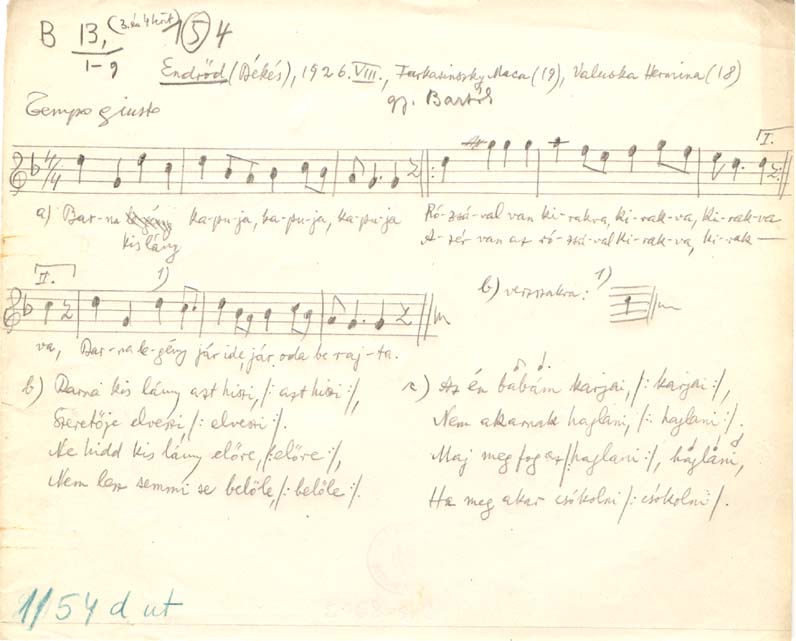 B 13, (3. és 4 között) 1(5)4
1-9
Endrőd (Békés), 1926. VIII., Farkasinszky Maca (19), Valuska Hermina (18)
gy. Bartók
Tempo giusto
4/4 I.
a) Bar-na ka-pu-ja, ka-pu-ja, ka-pu-ja Ró-zsá-val van ki-rakva, ki-rak-va, ki-rak-va
kis lány A-zér van az ró-zsá-val ki-rak-va, ki-rak—
II. 1) b) versszakra: 1)
va, Bar-na le-gény jár ide, jár oda be raj-ta.
b) Barna kis lány azt hiszi, /: azt hiszi :/,
Szeretője elveszi /: elveszi :/.
Ne hidd kis lány előre, /: előre :/,
Nem lesz semmi se belőle, /: belőle :/.
c) Az én babám karjai, /: karjai :/,
Nem akarnak hajlani, /: hajlani :/.
Maj meg fog az /: hajlani :/, hajlani,
Ha meg akar csókolni /: csókolni :/.
1/54 d ut